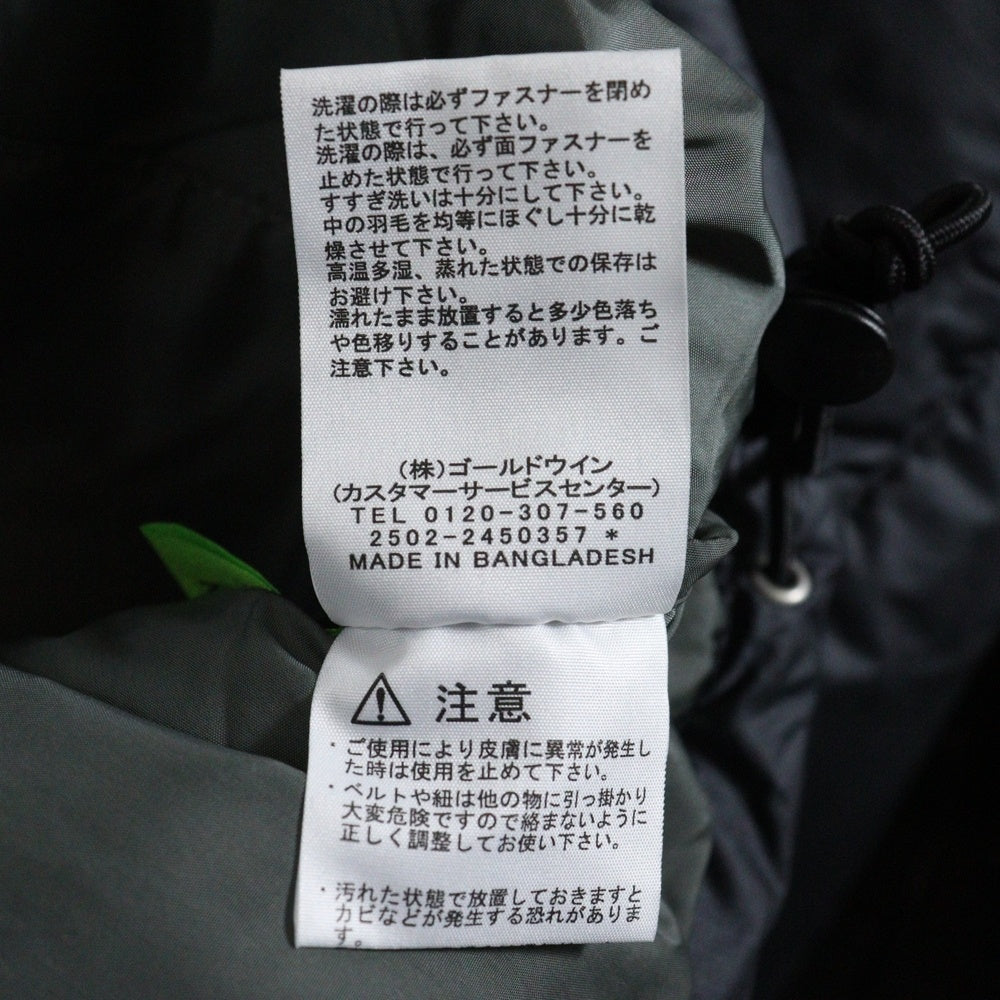 洗濯の際は必ずファスナーを閉め
た状態で行って下さい。
洗濯の際は、必ず面ファスナーを
止めた状態で行って下さい。
すすぎ洗いは十分にして下さい。
中の羽毛を均等にほぐし十分に乾
燥させて下さい。
高温多湿、蒸れた状態での保存は
お避け下さい。
濡れたまま放置すると多少色落ち
や色移りすることがあります。ご
注意下さい。
(株)ゴールドウイン
(カスタマーサービスセンター)
TEL 0120-307-560
2502-2450357 *
MADE IN BANGLADESH
注意
・ご使用により皮膚に異常が発生し
た時は使用を止めて下さい。
・ベルトや紐は他の物に引っ掛かり
大変危険ですので絡まないように
正しく調整してお使い下さい。
・汚れた状態で放置しておきますと
カビなどが発生する恐れがありま
す。